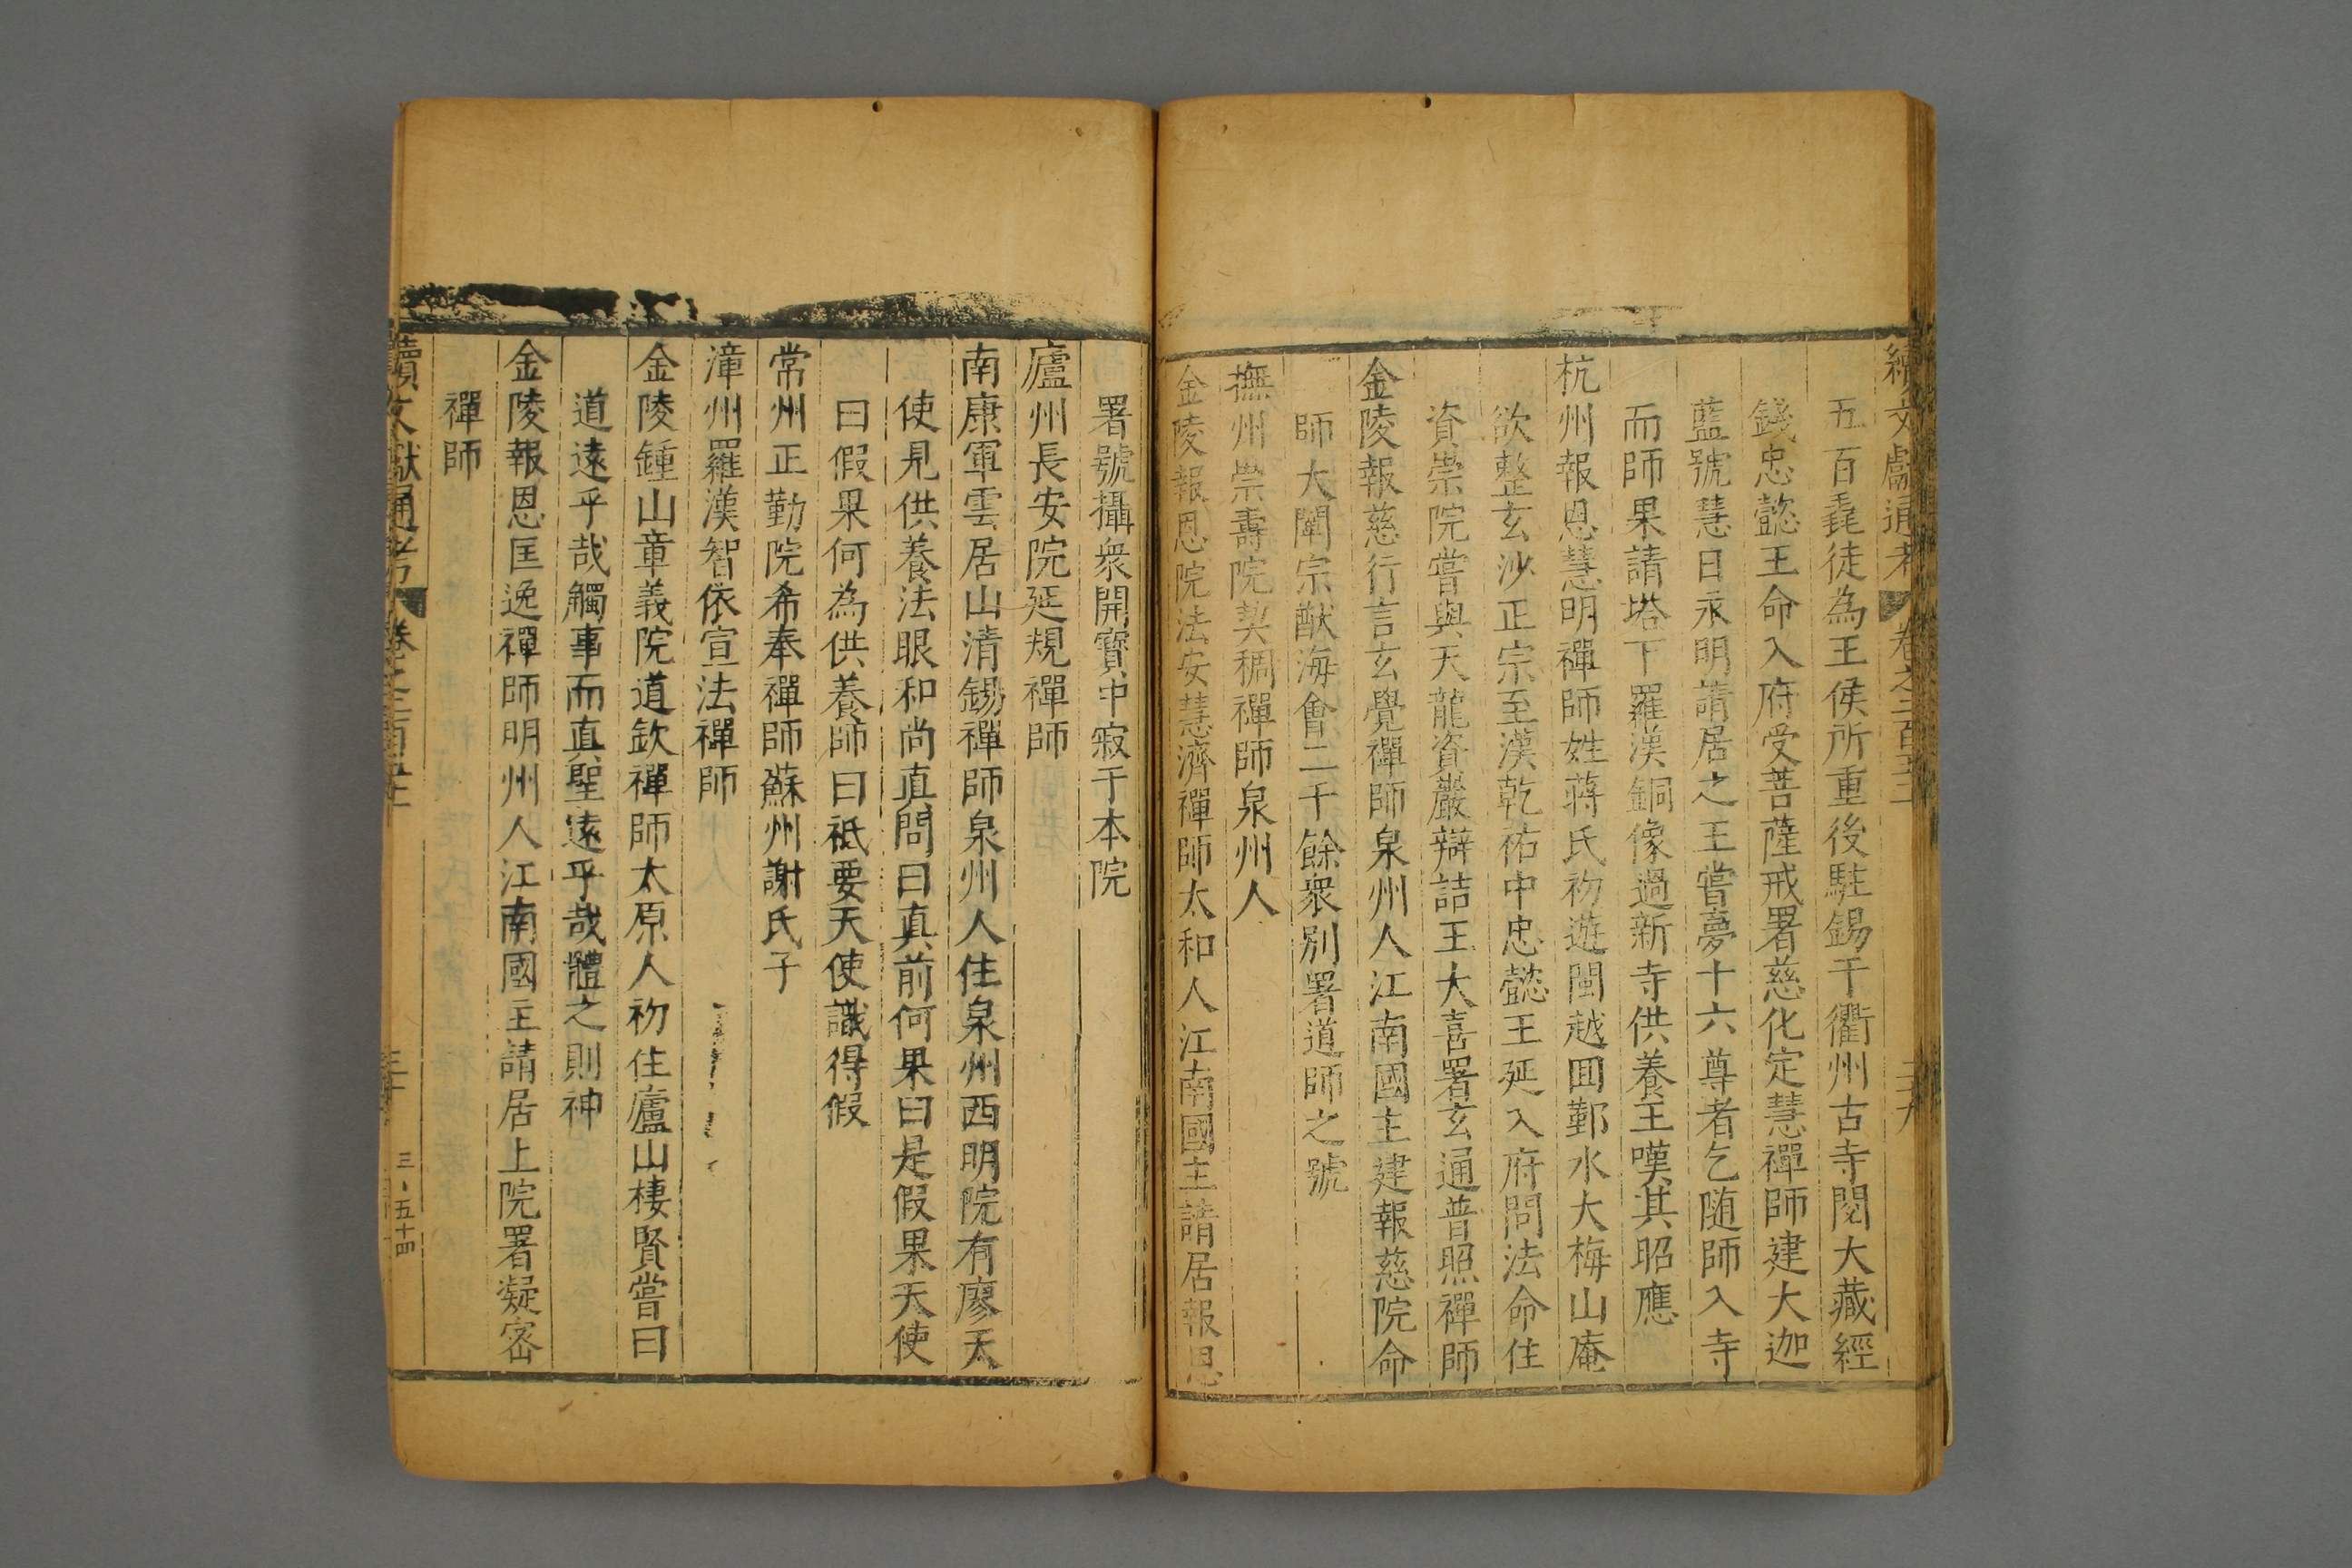 續文獻通考 卷之二百 五十九
五百毳徒為王侯所重後駐錫于衢州古寺閱大藏經
錢忠懿王命入府受菩薩戒署慈化定慧禪師建大迦
藍號慧日永明請居之王嘗夢十六尊者乞随師入寺
而師果請塔下羅漢銅像過新寺供養王嘆其昭應
杭州報恩慧明禪師姓蔣氏初遊閩越囬鄞水大梅山庵
欲整玄沙正宗至漢乾祐中忠懿王延入府問法命住
資崇院嘗與天龍資嚴辯詰王大喜署玄通普照禪師
金陵報慈行言玄覺禪師泉州人江南國主建報慈院命
師大闡宗猷海會二千餘衆别署道師之號
撫州崇壽院契稠禪師泉州人
金陵報恩院法安慧濟禪師太和人江南國主請居報恩
署號攝衆開寶中寂于本院
廬州長安院延規禪師
南康軍雲居山清錫禪師泉州人住泉州西明院有廖天
使見供養法眼和尚真問曰真前何果曰是假果天使
曰假果何為供養師曰祇要天使識得假
常州正勤院希奉禪師蘇州謝氏子
漳州羅漢智依宣法禪師
金陵鍾山章義院道欽禪師太原人初住廬山棲賢嘗曰
道遠乎哉觸事而真聖遠乎哉體之則神
金陵報恩匡逸禪師明州人江南國主請居上院署凝密
禪師
續文獻通考 卷之二百
三、五十四